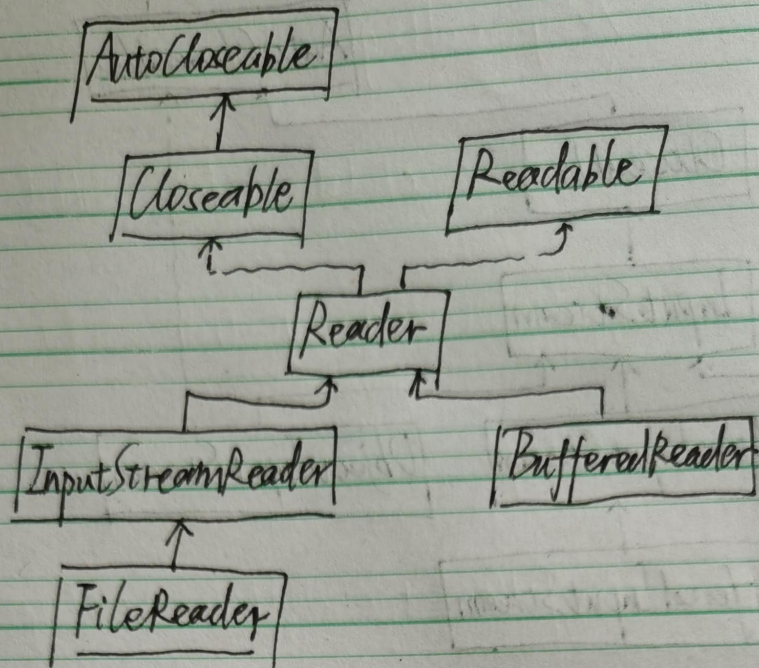 AutoCloseable
Closeable
Readable
Reader
InputStreamReader
BufferedReader
FileReader